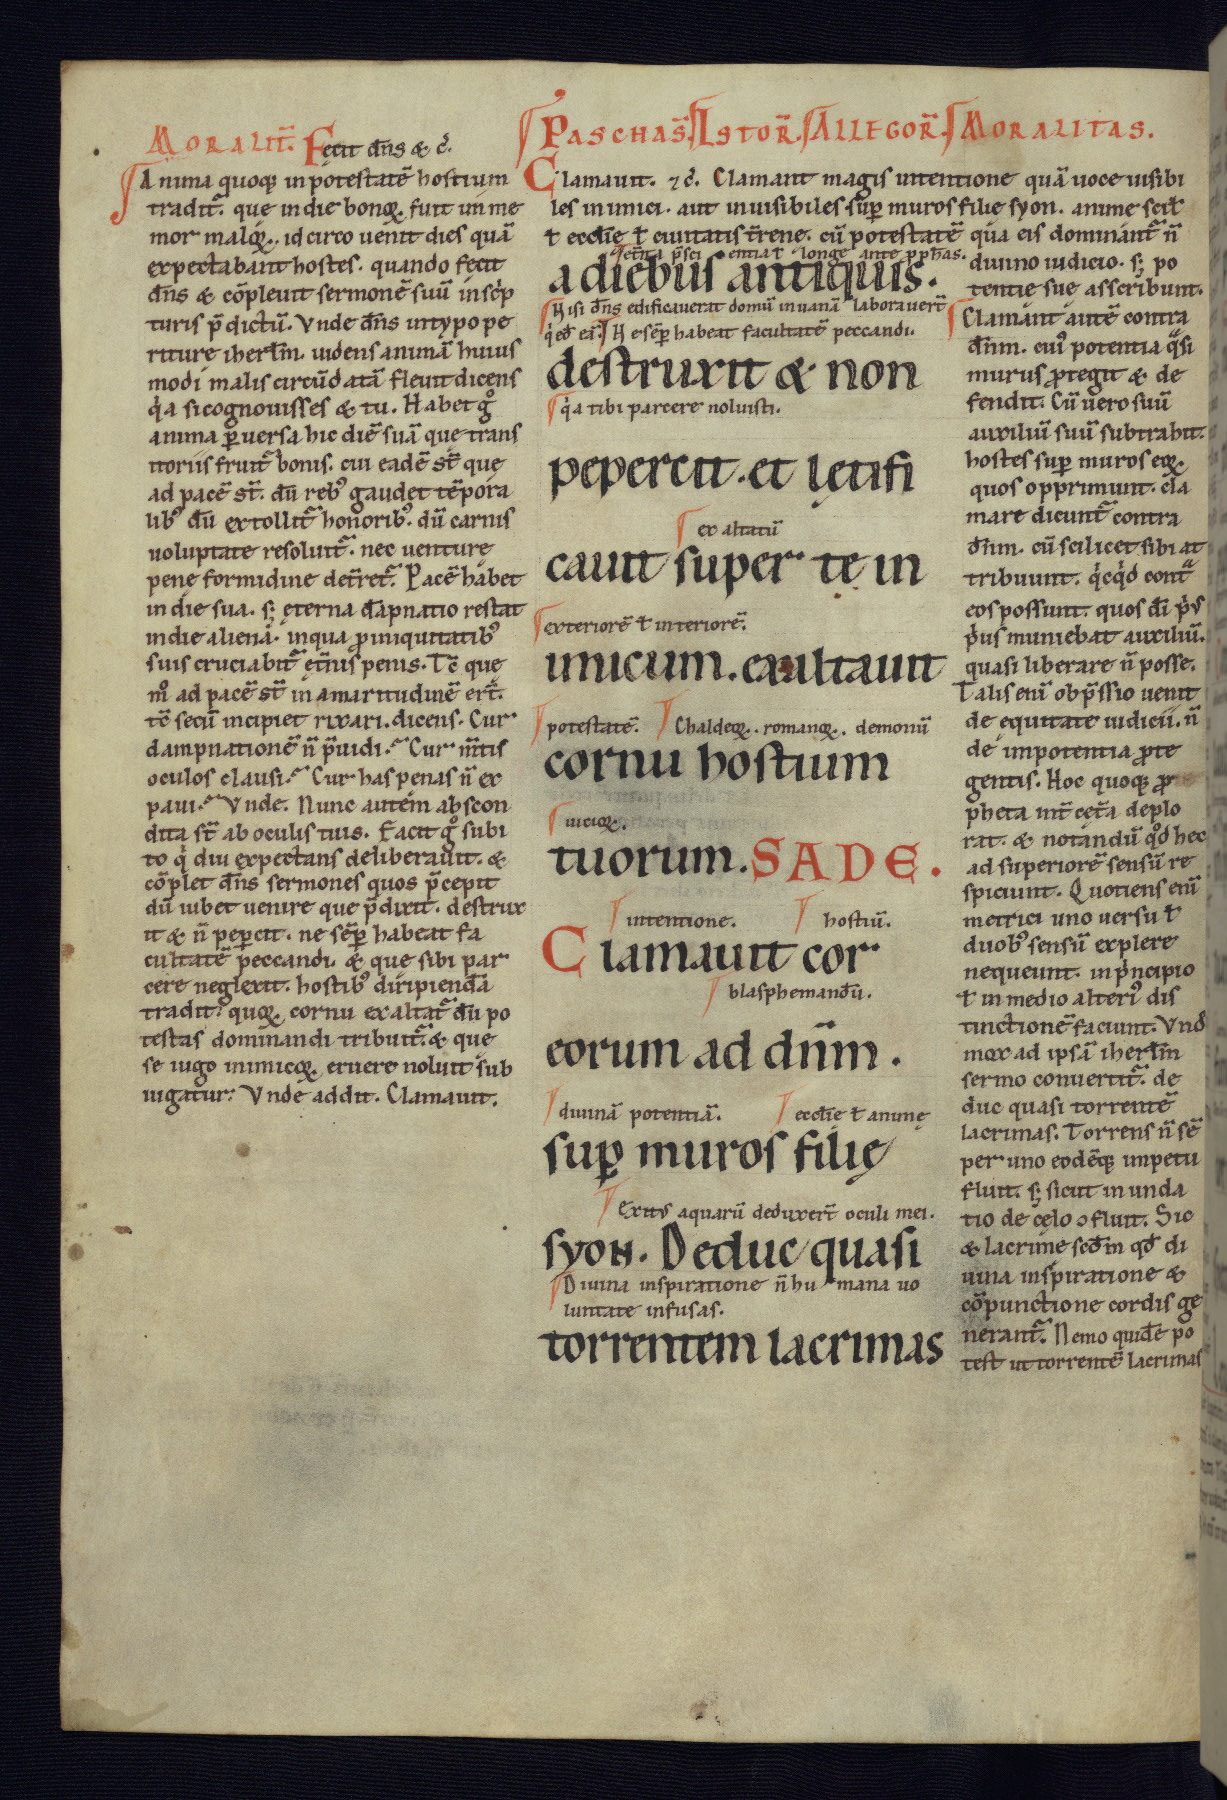 Moralit̄. Fecit dn̄s & c̄.
Anima quoq; in potestatē hostium
tradit᷑. que in die bonoꝝ fuit imme
mor maloꝝ. idcirco uenit dies quā
expectabant hostes. quando fecit
dn̄s & cōpleuit sermonē suū in sc̄p
turis p̄dictū. Vnde dn̄s in typo pe
riture ihertm̄. uidens animā huius
modi malis circūdatā fleuit dicens
q̇a si cognouisses & tu. Habet g̊
anima ꝑuersa hic diē suā que trans
itoriis fruit᷑ bonis. cui eadē st̄ que
ad pacē st̄. dū reb᾿ gaudet tēpora
lib᾿ dū extollit᷑ honorib᾿. dū carnis
uoluptate resoluit᷑. nec uenturę
penę formidine det̄ret᷑. Pacē habet
in die sua. s; ęterna dāpnatio restat
in die aliena. in qua ꝓ iniquitatib᾿
suis cruciabit᷑ ęt̄nis penis. Tē quę
m̊ ad pacē st̄ in amaritudinē ert̄.
tē secū incipiet rixari. dicens. Cur
dampnationē n̄ p̄uidi. Cur mn̄tis
oculos clausi. Cur has penas n̄ ex
paui. Vnde. Nunc autem abscon
dita st̄ ab oculis tuis. Facit g̊ subi
to q̇ diu expectans deliberauit. &
cōplet dn̄s sermones quos p̄cepit
dū iubet uenire que p̄dixit. destrux
it & n̄ peꝑcit. ne sēꝑ habeat fa
cultatē peccandi. & que sibi par
cere neglexit. hostib᾿ diripiendā
tradit. quoꝝ cornu exaltat᷑ dū po
testas dominandi tribuit᷑. & que
se iugo inimicoꝝ eruere noluit sub
iugatur. Vnde addit. Clamauit.
Paschas̄. Istor̄. Allegor̄. Moralitas.
Clamauit. ⁊ c̄. Clamant magis intentione quā uoce uisibi
les inimici. aut inuisibiles suꝑ muros filie syon. anime scił
ł ecclīe ł ciuitatis t̄rene. cū potestatē qua eis dominant᷑ n̄
ęt̄na p̄sci entia ł longe ante ꝓphas.
a diebus antiquis.
Nisi dn̄s edificauerat domū in uanā laborauer̄
q̇ ed̄ eā. Ne sēꝑ habeat facultatē peccandi.
destruxit & non
q̇a tibi parcere noluisti.
pepercit. et lętifi
exaltatiū
cauit super te in
exteriorē ł interiorē.
imicum. exultauit
potestatē. Chaldeoꝝ. romanoꝝ. demonū
cornu hostium
uicioꝝ.
tuorum. SADE.
intentione. hostiū.
Clamauit cor
blasphemandū.
eorum ad dn̄m.
diuinā potentiā. ecclīe ł animę
suꝑ muros filię
Exitus aquarū deduxer̄t oculi mei.
syon. Deduc quasi
Diuina inspiratione n̄ hu mana uo
luntate infusas.
torrentem lacrimas
diuino iudicio. s; po
tentie suę asscribunt.
Clamant autē contra
dn̄m. cui᾿ potentia q̄si
murus ꝓtegit & de
fendit. Cū uero suū
auxiliū suū subtrahit.
hostes suꝑ muros eoꝝ
quos opprimunt. cla
mare dicunt᷑ contra
dn̄m. cū scilicet sibi at
tribuunt. q̇cq̇d cont̄
eos possunt. quos dn̄i p̄i᾿
p̄us muniebat auxiliū.
quasi liberare n̄ posse.
Talis enī obp̄ssio uenit
de equitate iudicii. n̄
de impotentia ꝓte
gentis. Hoc quoq; ꝓ
pheta int̄ cet̄a deplo
rat. & notandū qd̄ hec
ad superiorē sensū re
spiciunt. Quotiens enī
metrici uno uersu ł
duob᾿ sensū explere
nequeunt. in p̄ncipio
ł in medio alteri᾿ dis
tinctionē faciunt. Vnd̄
mox ad ipsā ihertm̄
sermo conuertit᷑. de
duc quasi torrentē
lacrimas. Torrens n̄ sē
per uno eodēq; impetu
fluit. s; sicut inunda
tio de cęlo ↄfluit. Sic
& lacrime scd̄m qd̄ di
uina inspiratione &
cōpunctione cordis ge
nerant᷑. Nemo quidē po
test ut torrentē lacrimas